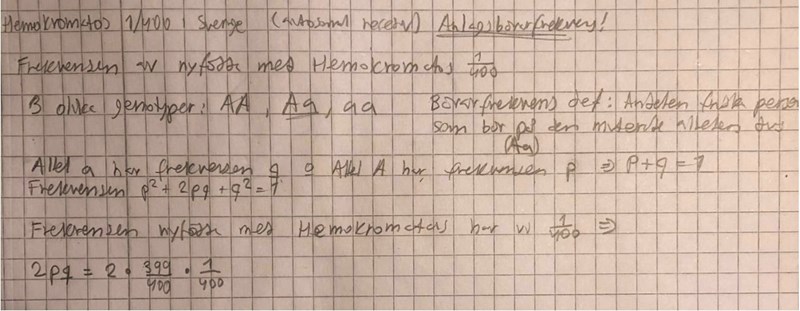 Hemokromatos 1/400 i Sverige (autosomal recessiv) Anlagsbärarfrekvens!
Frekvensen av nyfödda med Hemokromatos 1/400
3 olika genotyper: AA, Aa, aa Bärarfrekvens def: Andelen friska personer
som bär på den muterade allelen dvs
(Aa)
Allel a har frekvensen q o Allel A har frekvensen p ⇒ p+q=1
Frekvensen p²+2pq+q²=1
Frekvensen nyfödda med Hemokromatos har av 1/400 ⇒
2pq = 2 · 399/400 · 1/400